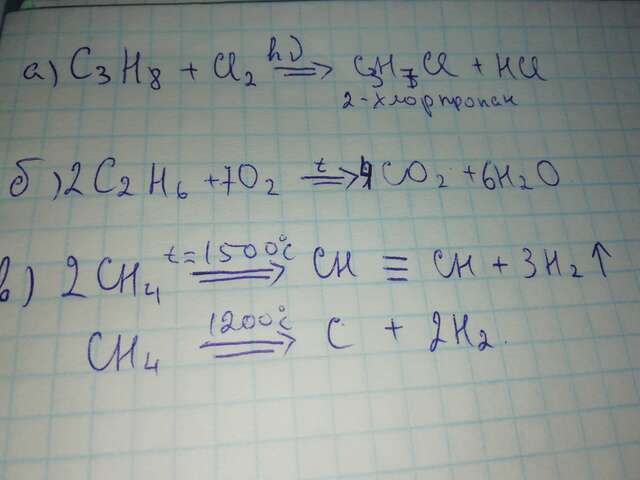 а) C₃H₈ + Cl₂ hν⟹ C₃H₇Cl + HCl
2-хлорпропан
б) 2C₂H₆ + 7O₂ t⟹ 4CO₂ + 6H₂O
в) 2CH₄ t=1500°C⟹ CH ≡ CH + 3H₂↑
CH₄ 1200°C⟹ C + 2H₂.